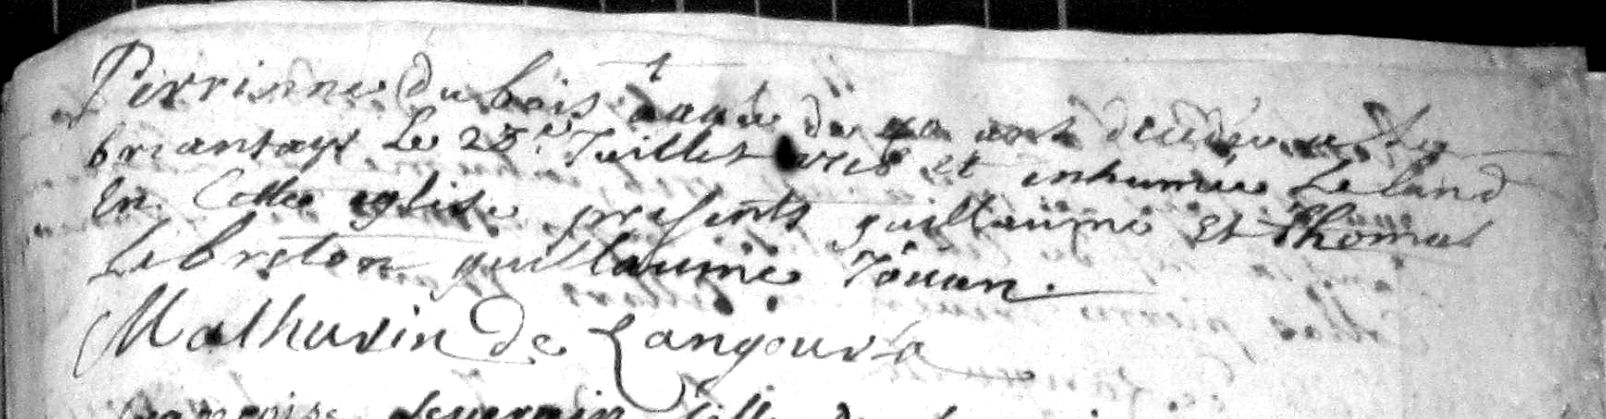 Perrinne du bois agée de ans decedée
briantays Le 25.e Juillet 1718 et inhumée Le land
En Cette eglise presents guillaume Et Thomas
Le breton guillaume Jouan.
Mathurin de Langourla
francoise fille